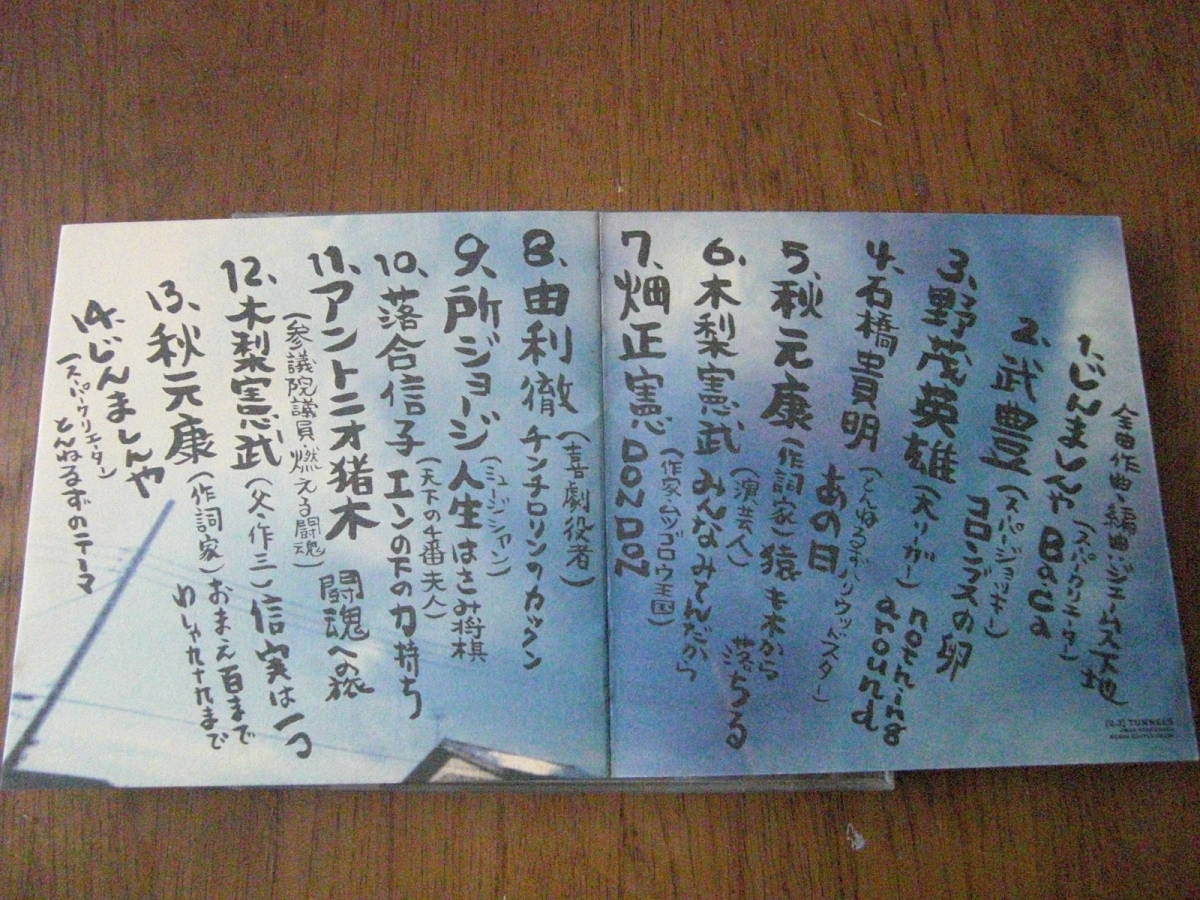 全曲作曲・編曲/ジェームス下地
1、じんましんや Baca
(スーパークリエーター)
2、武豊 コロンブスの卵
(スーパージョッキー)
3、野茂英雄 nothing around
(大リーガー)
4、石橋貴明 あの日
(とんねるず・ハリウッドスター)
5、秋元康 猿も木から落ちる
(作詞家)
6、木梨憲武 みんなみてんだから
(演芸人)
7、畑正憲 DON DON
(作家・ムツゴロウ王国)
8、由利徹 チンチロリンのカックン
(喜劇役者)
9、所ジョージ 人生はさみ将棋
(ミュージシャン)
10、落合信子 エンの下の力持ち
(天下の4番夫人)
11、アントニオ猪木 闘魂への旅
(参議院議員・燃える闘魂)
12、木梨憲武 信実は一つ
(父・作三)
13、秋元康 おまえ百まで わしゃ九十九まで
(作詞家)
14、じんましんや
(スーパークリエーター)
とんねるずのテーマ
TUNNELS